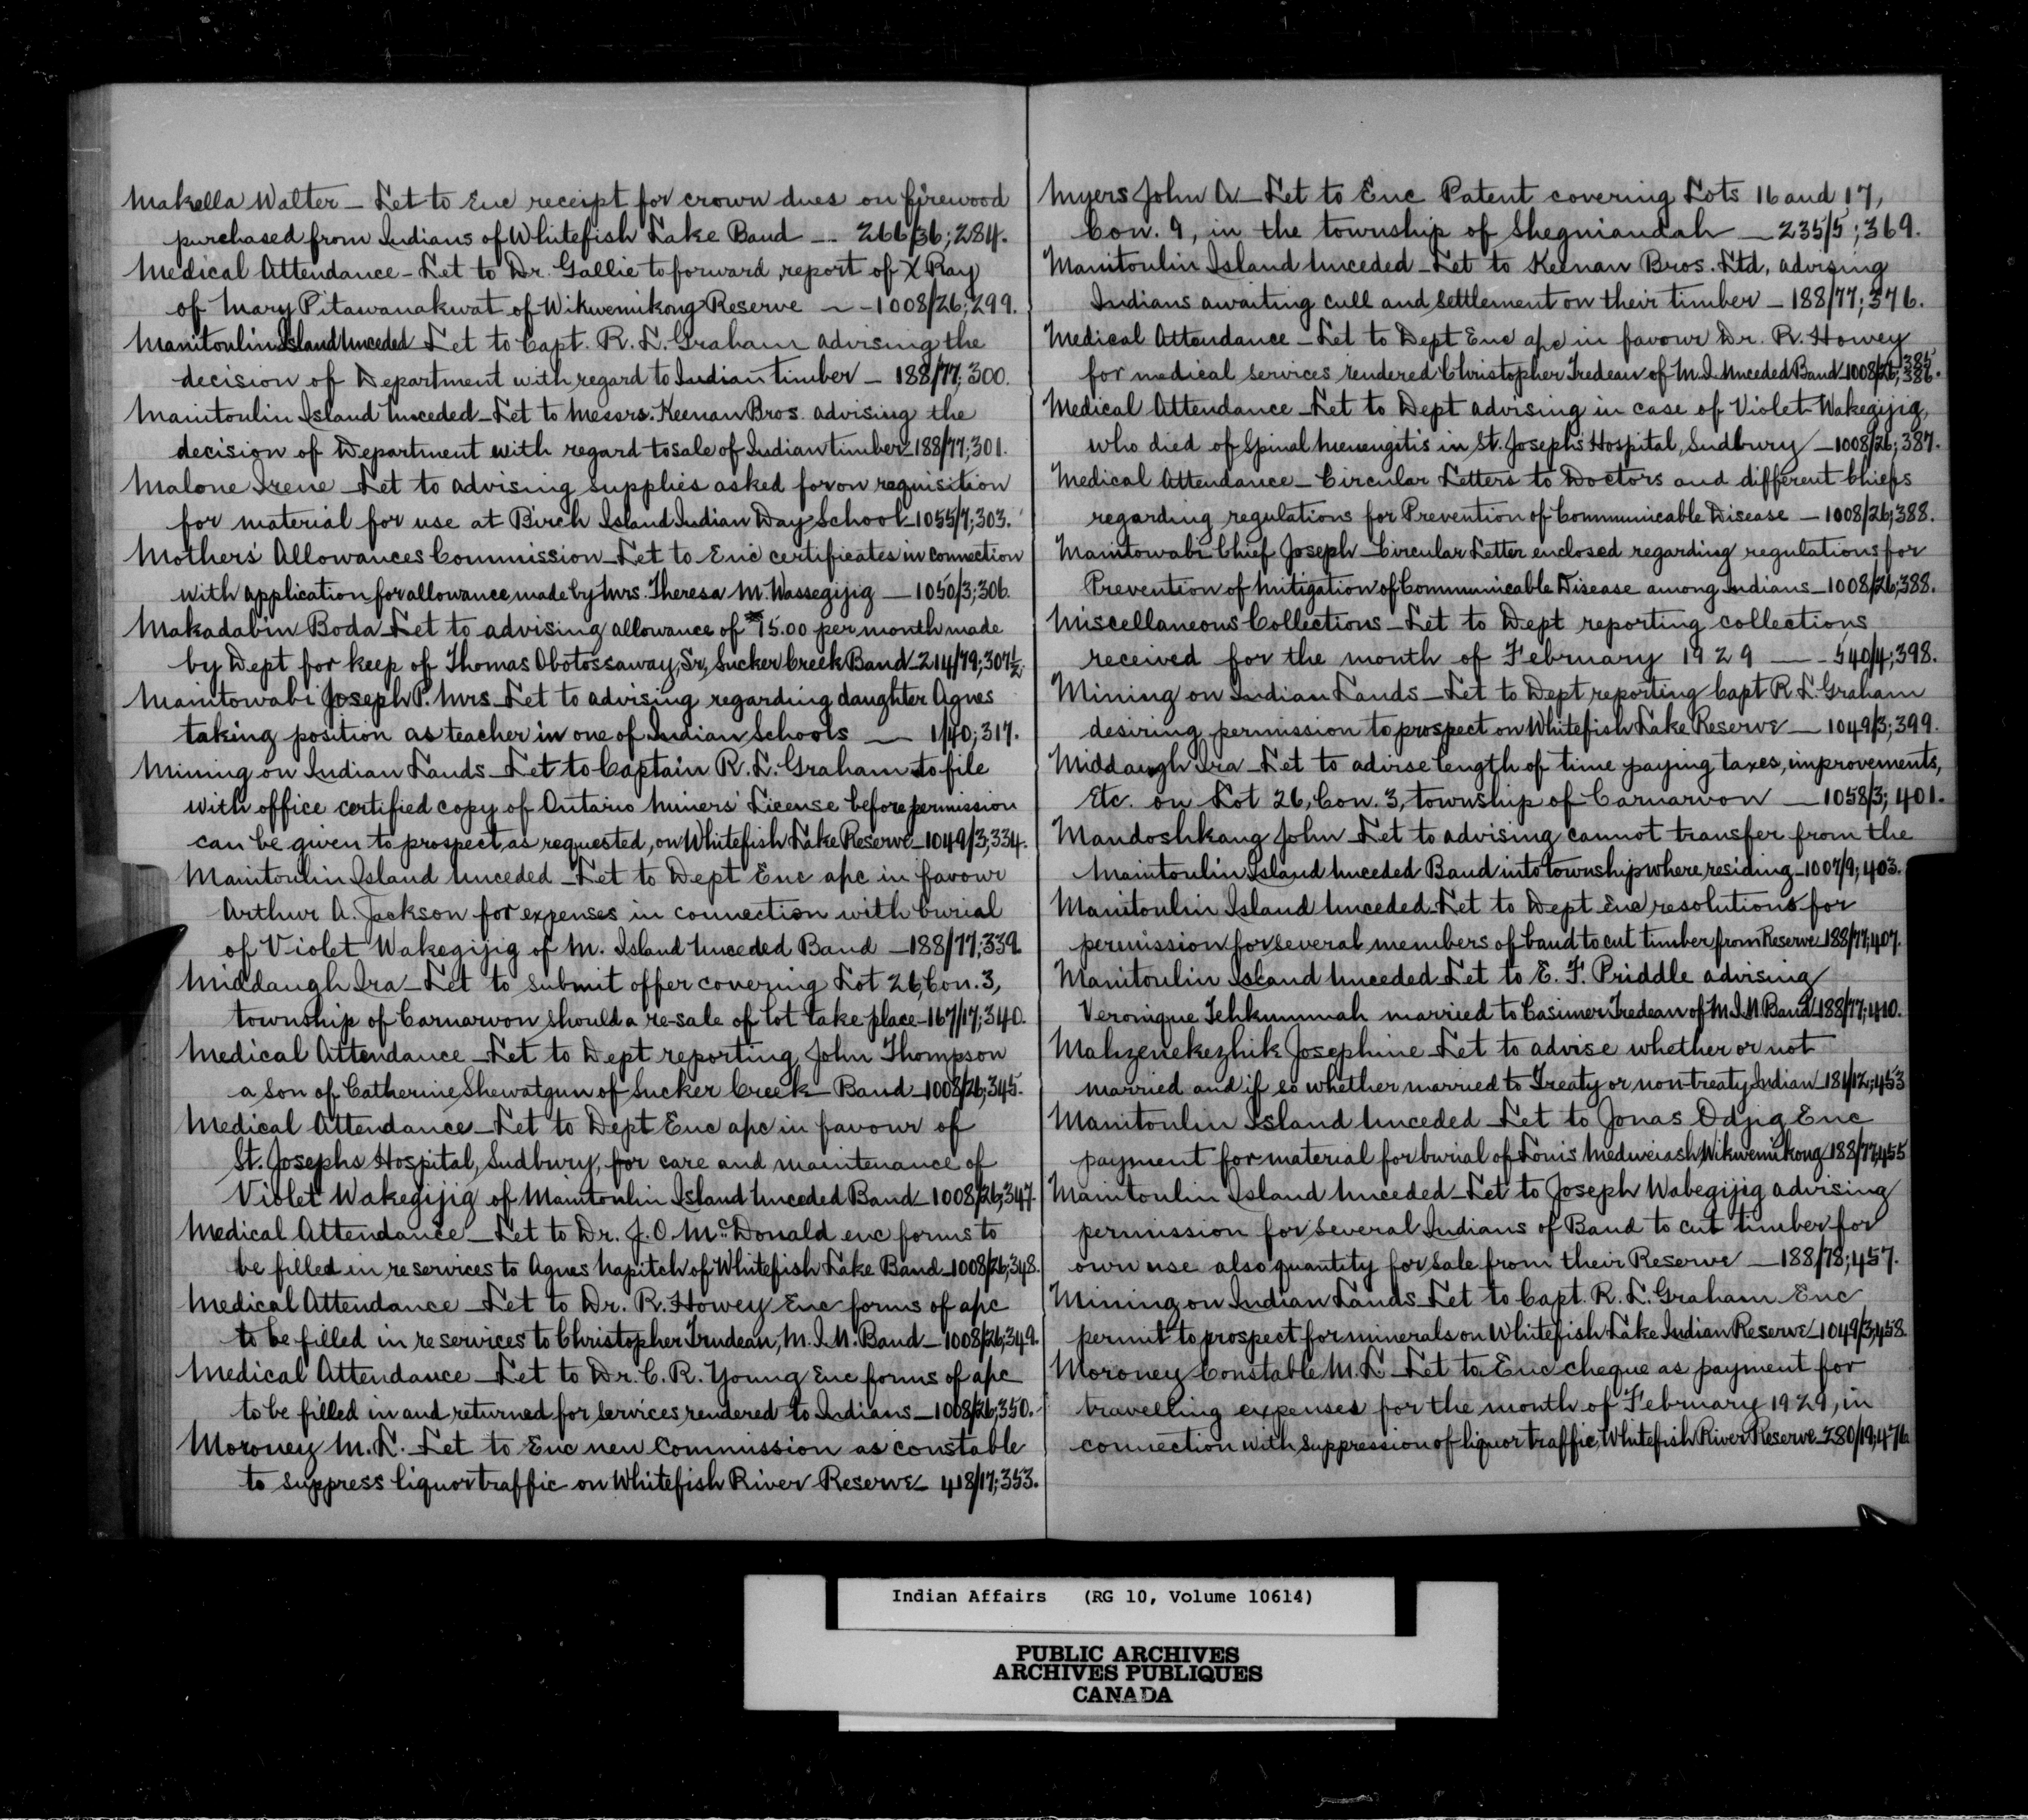 Makella Walter – Let to Enc receipt for crown dues on firewood
purchased from Indians of Whitefish Lake Band -- 266/36; 284.
Medical Attendance – Let to Dr. Gallie to forward report of X Ray
of Mary Pitawanakwat of Wikwemikong Reserve – - 1008/26; 299.
Manitoulin Island Unceded Let to Capt. R. L. Graham advising the
decision of Department with regard to Indian timber – 188/77; 300.
Manitoulin Island Unceded – Let to Messrs. Keenan Bros. advising the
decision of Department with regard to sale of Indian timber – 188/77; 301.
Malone Irene – Let to advising supplies asked for on requisition
for material for use at Birch Island Indian Day School – 1055/7; 303.
Mothers' Allowances Commission – Let to Enc certificates in connection
with application for allowance made by Mrs. Theresa M. Wassegijig – 1050/3; 306.
Makadabin Boda – Let to advising allowance of $15.00 per month made
by Dept for keep of Thomas Obotossaway, Sr, Sucker Creek Band – 214/79; 307½.
Manitowabi Joseph P. Mrs – Let to advising regarding daughter Agnes
taking position as teacher in one of Indian Schools – 1/40; 317.
Mining on Indian Lands – Let to Captain R. L. Graham to file
with office certified copy of Ontario Miners' License before permission
can be given to prospect, as requested, on Whitefish Lake Reserve – 1049/3; 334.
Manitoulin Island Unceded – Let to Dept Enc apc in favour
Arthur A. Jackson for expenses in connection with burial
of Violet Wakegijig of M. Island Unceded Band – 188/77; 339.
Middaugh Ira – Let to submit offer covering Lot 26, Con. 3,
township of Carnarvon should a re-sale of lot take place – 167/17; 340.
Medical Attendance – Let to Dept reporting John Thompson
a son of Catherine Shewatgun of Sucker Creek Band – 1008/26; 345.
Medical Attendance – Let to Dept Enc apc in favour of
St. Josephs Hospital, Sudbury, for care and maintenance of
Violet Wakegijig of Manitoulin Island Unceded Band – 1008/26; 347.
Medical Attendance – Let to Dr. J. O. McDonald enc forms to
be filled in re services to Agnes Napitch of Whitefish Lake Band – 1008/26; 348.
Medical Attendance – Let to Dr. R. Howey Enc forms of apc
to be filled in re services to Christopher Trudeau, M. I. U. Band – 1008/26; 349.
Medical Attendance – Let to Dr. C. R. Young Enc forms of apc
to be filled in and returned for services rendered to Indians – 1008/26; 350.
Moroney M. L. Let to Enc new Commission as constable
to suppress liquor traffic on Whitefish River Reserve – 418/17; 353.
Myers John A – Let to Enc Patent covering Lots 16 and 17,
Con. 9, in the township of Sheguiandah – 235/5; 369.
Manitoulin Island Unceded – Let to Keenan Bros. Ltd, advising
Indians awaiting cull and settlement on their timber – 188/77; 376.
Medical Attendance – Let to Dept Enc apc in favour Dr. R. Howey
for medical services rendered Christopher Tredeau of M. I. Unceded Band – 1008/26; 385 386.
Medical Attendance – Let to Dept advising in case of Violet Wakegijig,
who died of Spinal Menengitis in St. Josephs Hospital, Sudbury – 1008/26; 387.
Medical Attendance – Circular Letters to Doctors and different Chiefs
regarding regulations for Prevention of Communicable Disease – 1008/26; 388.
Manitowabi Chief Joseph – Circular Letter enclosed regarding regulations for
Prevention of Mitigation of Communicable Disease among Indians – 1008/26; 388.
Miscellaneous Collections – Let to Dept reporting collections
received for the month of February 1929 – - 540/4; 398.
Mining on Indian Lands – Let to Dept reporting Capt R. L. Graham
desiring permission to prospect on Whitefish Lake Reserve – 1049/3; 399.
Middaugh Ira – Let to advise length of time paying taxes, improvements,
Etc. on Lot 26, Con. 3, township of Carnarvon – 1058/3; 401.
Mandoshkang John – Let to advising cannot transfer from the
Manitoulin Island Unceded Band into township where residing – 1007/9; 403.
Manitoulin Island Unceded – Let to Dept Enc resolutions for
permission for several members of band to cut timber from Reserve 188/77; 407.
Manitoulin Island Unceded – Let to E. F. Priddle advising
Veronique Tehkummah married to Casimer Tredeau of M. I. U. Band – 188/77; 410.
Mahzenekezhik Josephine – Let to advise whether or not
married and if so whether married to Treaty or non treaty Indian – 181/12; 453
Manitoulin Island Unceded – Let to Jonas Odjig Enc
payment for material for burial of Louis Medweiash, Wikwemikong 188/77; 455
Manitoulin Island Unceded – Let to Joseph Wabegijig advising
permission for several Indians of Band to cut timber for
own use also quantity for sale from their Reserve – 188/78; 457.
Mining on Indian Lands – Let to Capt. R. L. Graham Enc
permit to prospect for minerals on Whitefish Lake Indian Reserve – 1049/3; 458.
Moroney Constable M. L – Let to Enc cheque as payment for
travelling expenses for the month of February 1929, in
connection with suppression of liquor traffic, Whitefish River Reserve – 280/19; 476
Indian Affairs (RG 10, Volume 10614)
PUBLIC ARCHIVES
ARCHIVES PUBLIQUES
CANADA